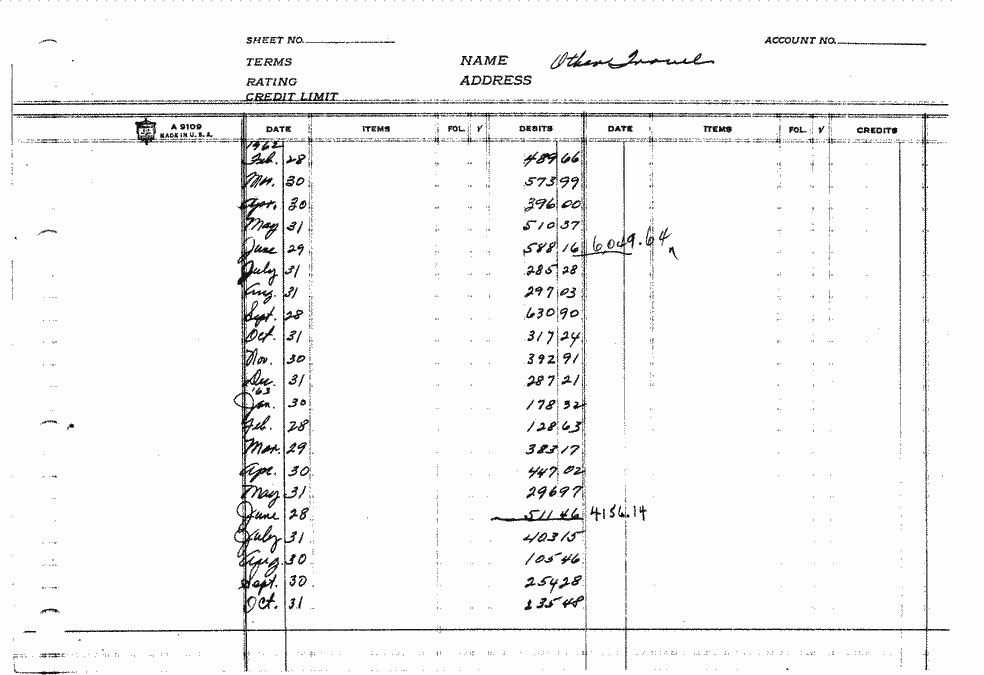 SHEET NO. ACCOUNT NO.
TERMS NAME Other Travel
RATING ADDRESS
CREDIT LIMIT
A 9109 MADE IN U.S.A. DATE ITEMS FOL. √ DEBITS DATE ITEMS FOL. √ CREDITS
1962
Feb. 28 489 66
Mar. 30 573 99
Apr. 30 396 00
May 31 510 37
June 29 588 16 6049.64
July 31 285 28
Aug. 31 297 03
Sept. 28 630 90
Oct. 31 317 24
Nov. 30 392 91
Dec. 31 287 21
'63
Jan. 30 178 32
Feb. 28 128 63
Mar. 29 383 17
Apr. 30 447 02
May 31 296 97
June 28 511 46 4156.14
July 31 403 15
Aug 30 105 46
Sept. 30 254 28
Oct. 31 48